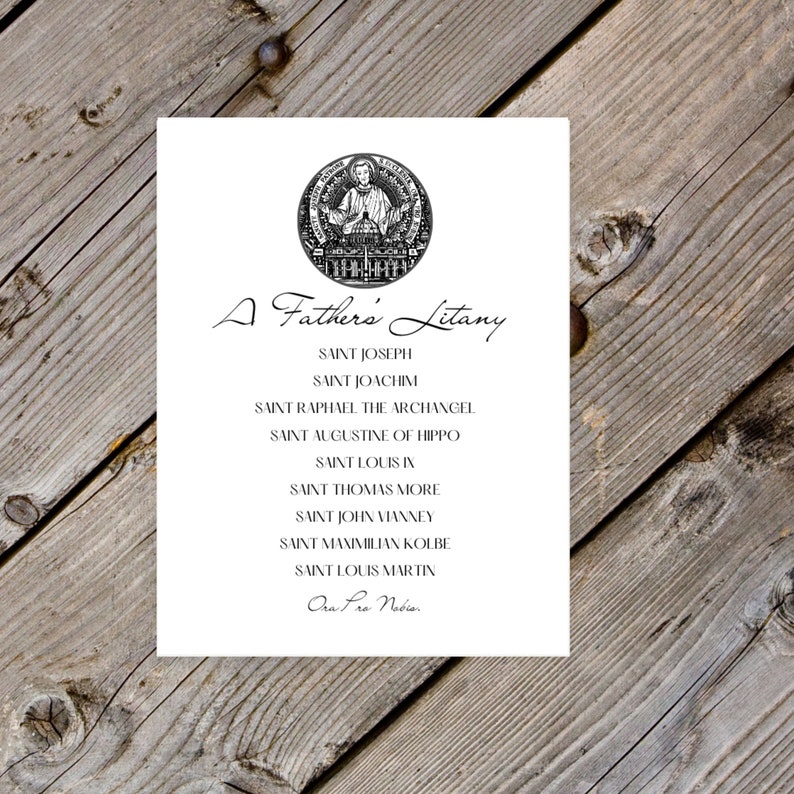 SANCTE JOSEPH PATRONE S. ECCLESIÆ, ORA PRO NOBIS
A Father's Litany
SAINT JOSEPH
SAINT JOACHIM
SAINT RAPHAEL THE ARCHANGEL
SAINT AUGUSTINE OF HIPPO
SAINT LOUIS IX
SAINT THOMAS MORE
SAINT JOHN VIANNEY
SAINT MAXIMILIAN KOLBE
SAINT LOUIS MARTIN
Ora Pro Nobis.